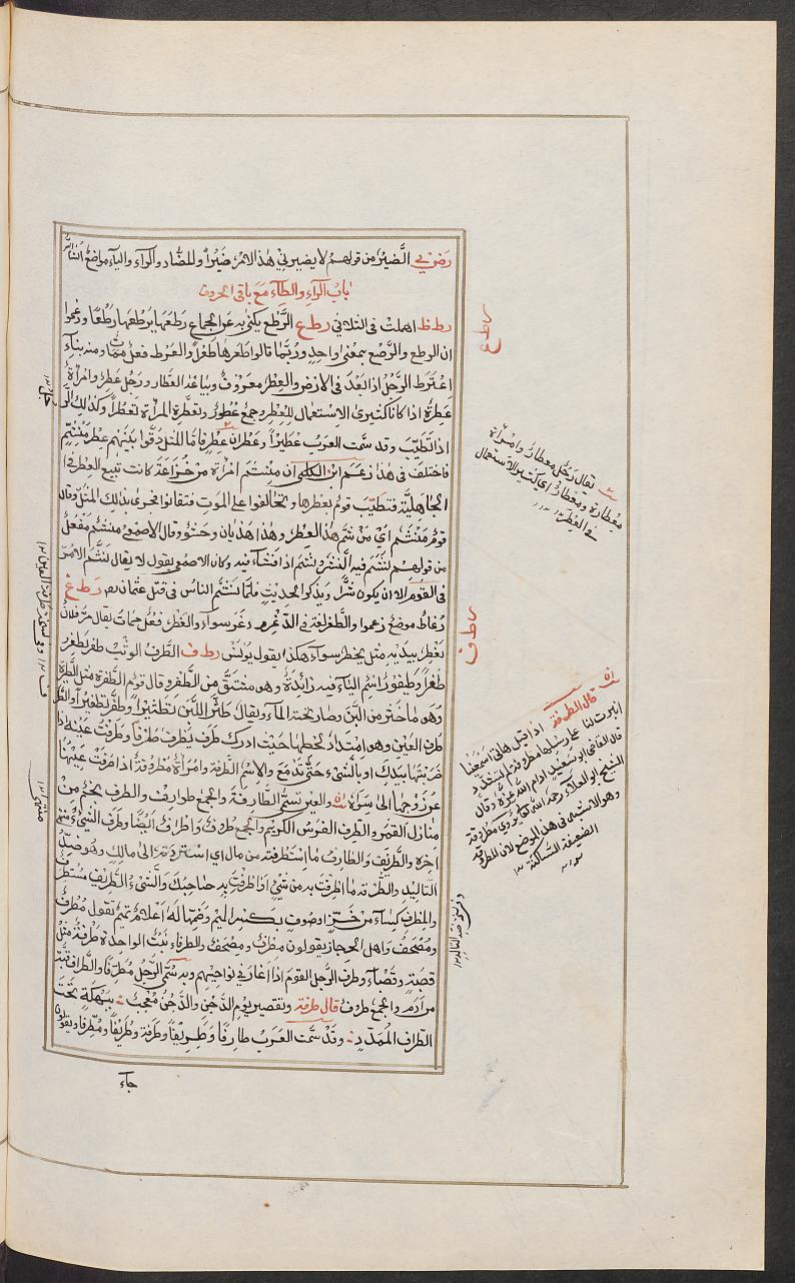 رض ي الضير من قولهم لا يضيرني هذا الامر ضيرا وللضاد والراء والياء مواضع
باب الراء والطاء مع باقي الحروف
رط ظ اهملت في الثلاثي رط ع الرطع يكنى به عن الجماع رطعها يرطعها رطعا وزعموا
ان الرطع والرصع بمعنى واحد وربما قالوا طعرها طعرا والعرط فعل ممات ومنه بناء
اعترط الرجل اذا بعد في الارض والعطر معروف وبياعه العطار ورجل عطر وامراة
عطرة اذا كانا كثيري الاستعمال للعطر وجمع عطور وتعطرة المراة تعطرا وكذلك
اذا تطيب وقد سمت العرب عطيرا وعطران فاما المثل دقوا بينهم عطر منشم
فاختلف في هذا زعم ابن الكلبي ان منشم امراة من خزاعة كانت تبيع العطر في
الجاهلية فتطيب قوم بعطرها وتحالفوا على الموت فتفانوا فجرى بذلك المثل وقال
قوم منشم اي من شم هذا العطر وهذا هذيان وحشو وقال الاصمعي منشم مفعل
من قولهم نشم فيه الشر ونشم اذا فشا فيه وكان الاصمعي يقول لا يقال نشم الامر
في القوم الا ان يكون شرا ويذكر الحديث فلما نشم الناس في قتل عثمان رط غ
رغاط موضع زعموا والطغر لغة في الدغر طغره دغره سواء والغطر فعل ممات يقال مر فلان
يغطر بيديه مثل يخطر سواء هكذا يقول يونس رط ف الطفر الوثب طفر يطفر
طفرا وطيفور اسم الياء فيه زائدة وهو مشتق من الطفر وقال قوم الطفرة مثل الطثرة
وهو ما خثر من اللبن وصار تحته الماء ويقال طثر اللبن تطثيرا وطفر تطفيرا والطرف
طرف العين وهو امتداد لحظها حيث ادرك طرف يطرف طرفا وطرفت عينه اذا
ضربتها بيدك او بالشيء حتى تدمع والاسم الطرفة وامراة مطروفة اذا طرفت عينها
عن زوجها الى سواه والعين تسمى الطارفة والجمع طوارف والطرف نجم من
منازل القمر والطرف الفرس الكريم والجمع طروف واطراف ايضا وطرف الشيء منتهى
اخره والطريف والطارف ما استطرفته من مال اي استزدته الى مالك وهو ضد
التاليد والطرفة ما اطرفت به من شيء او اطرفت به صاحبك والشيء الطريف مستطرف
والمطرف كساء من خز او صوف بكسر الميم وضمها له اعلام تميم تقول مطرف
ومصحف واهل الحجاز يقولون مطرف ومصحف والطرفاء نبت الواحدة طرفة مثل
قصبة وقصباء وطرف الرجل القوم اذا اغار في نواحيهم وبه سمي الرجل مطرفا والطراف قبة
من ادم والجمع طروف قال طرفة وتقصير يوم الدجن والدجن معجب ببهكلة تحت
الطراف الممدد وقد سمت العرب طارفا وطريفا وطرفة وطريفا ومطرفا ويقولون
جاء
رط ع
يقال رجل معطار وامراة
معطارة ومعطار اي كثير الاستعمال
في العطر
رط ف
قال الطرفة اذا قيل هاتي اسمعينا
انبرت لنا على رسلها مطروفة لم تشدد
قال القاضي ابو سعيد ادام الله عزه وقال
الشيخ ابو العلاء رحمه الله تعالى يروى مطروفة
وهو الاشبه في هذا الموضع لان المطروفة
الضعيفة الساكنة